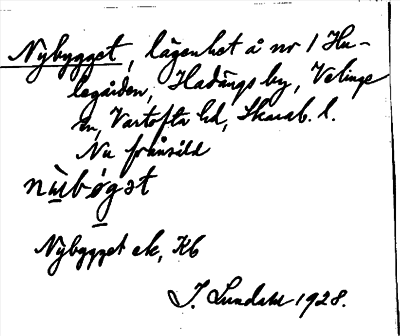 Nybygget, lägenhet å nr 1 Hu-
legården, Hadängs by, Velinge
sn, Vartofta hd, Skarab. l.
Nu frånsåld
nùbøgət
Nybygget ek, Kb
I. Lundahl 1928.